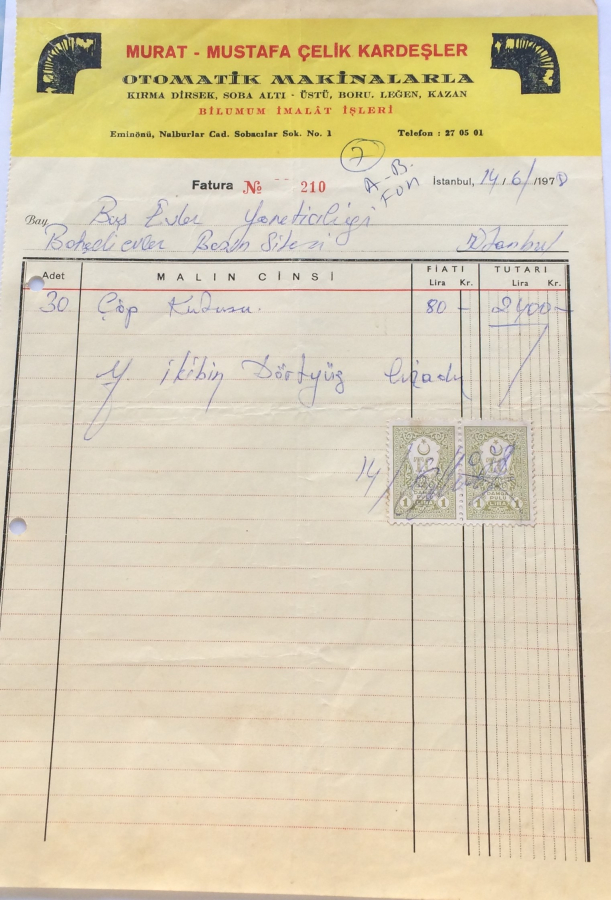 MURAT - MUSTAFA ÇELİK KARDEŞLER
OTOMATİK MAKİNALARLA
KIRMA DİRSEK, SOBA ALTI - ÜSTÜ, BORU, LEĞEN, KAZAN
BİLUMUM İMALÂT İŞLERİ
Eminönü, Nalburlar Cad. Sobacılar Sok. No. 1 Telefon : 27 05 01
7
A-B. Fon
Fatura No 210 İstanbul, 14/6/1978
Bay Baş Evler Yöneticiliği
Bahçelievler Basın Sitesi İstanbul
Adet MALIN CİNSİ FİATI Lira Kr. TUTARI Lira Kr.
30 Çöp Kutusu. 80 - 2400-
Y. ikibin Dörtyüz liradır
14/6/1978
T.C. T.C.
1 DAMGA PULU LİRA 1 1 DAMGA PULU LİRA 1